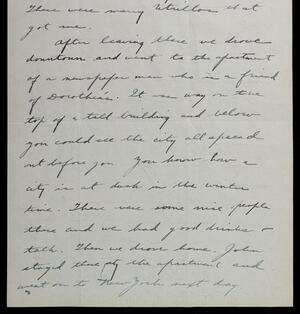 There were many Utrillos that
got me.
After leaving there we drove
downtown and went to the apartment
of a newspaper man who is a friend
of Dorothea's. It was way on the
top of a tall building and below
you could see the city all spread
out before you. You know how a
city is at dusk in the winter
time. There were some nice people
there and we had good drinks &
talk. Then we drove home. John
stayed there at the apartment and
went on to New York next day